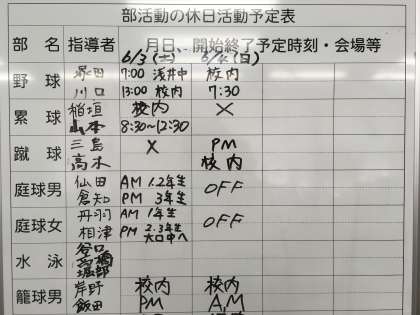 部活動の休日活動予定表
部 名 指導者 月日、開始終了予定時刻・会場等
6/3(土) 6/4(日)
野 球 塚田 7:00 浅井中 校内
川口 13:00 校内 7:30
塁 球 稲垣 校内 ×
山本 8:30~12:30
蹴 球 三島 × PM
高木 校内
庭球男 仙田 AM 1.2年生 OFF
倉知 PM 3年生
庭球女 丹羽 AM 1年生 OFF
相津 PM 2.3年生
大口中へ
水 泳 谷口
高橋
堀部
籠球男 岸野 校内 校内
飯田 PM AM